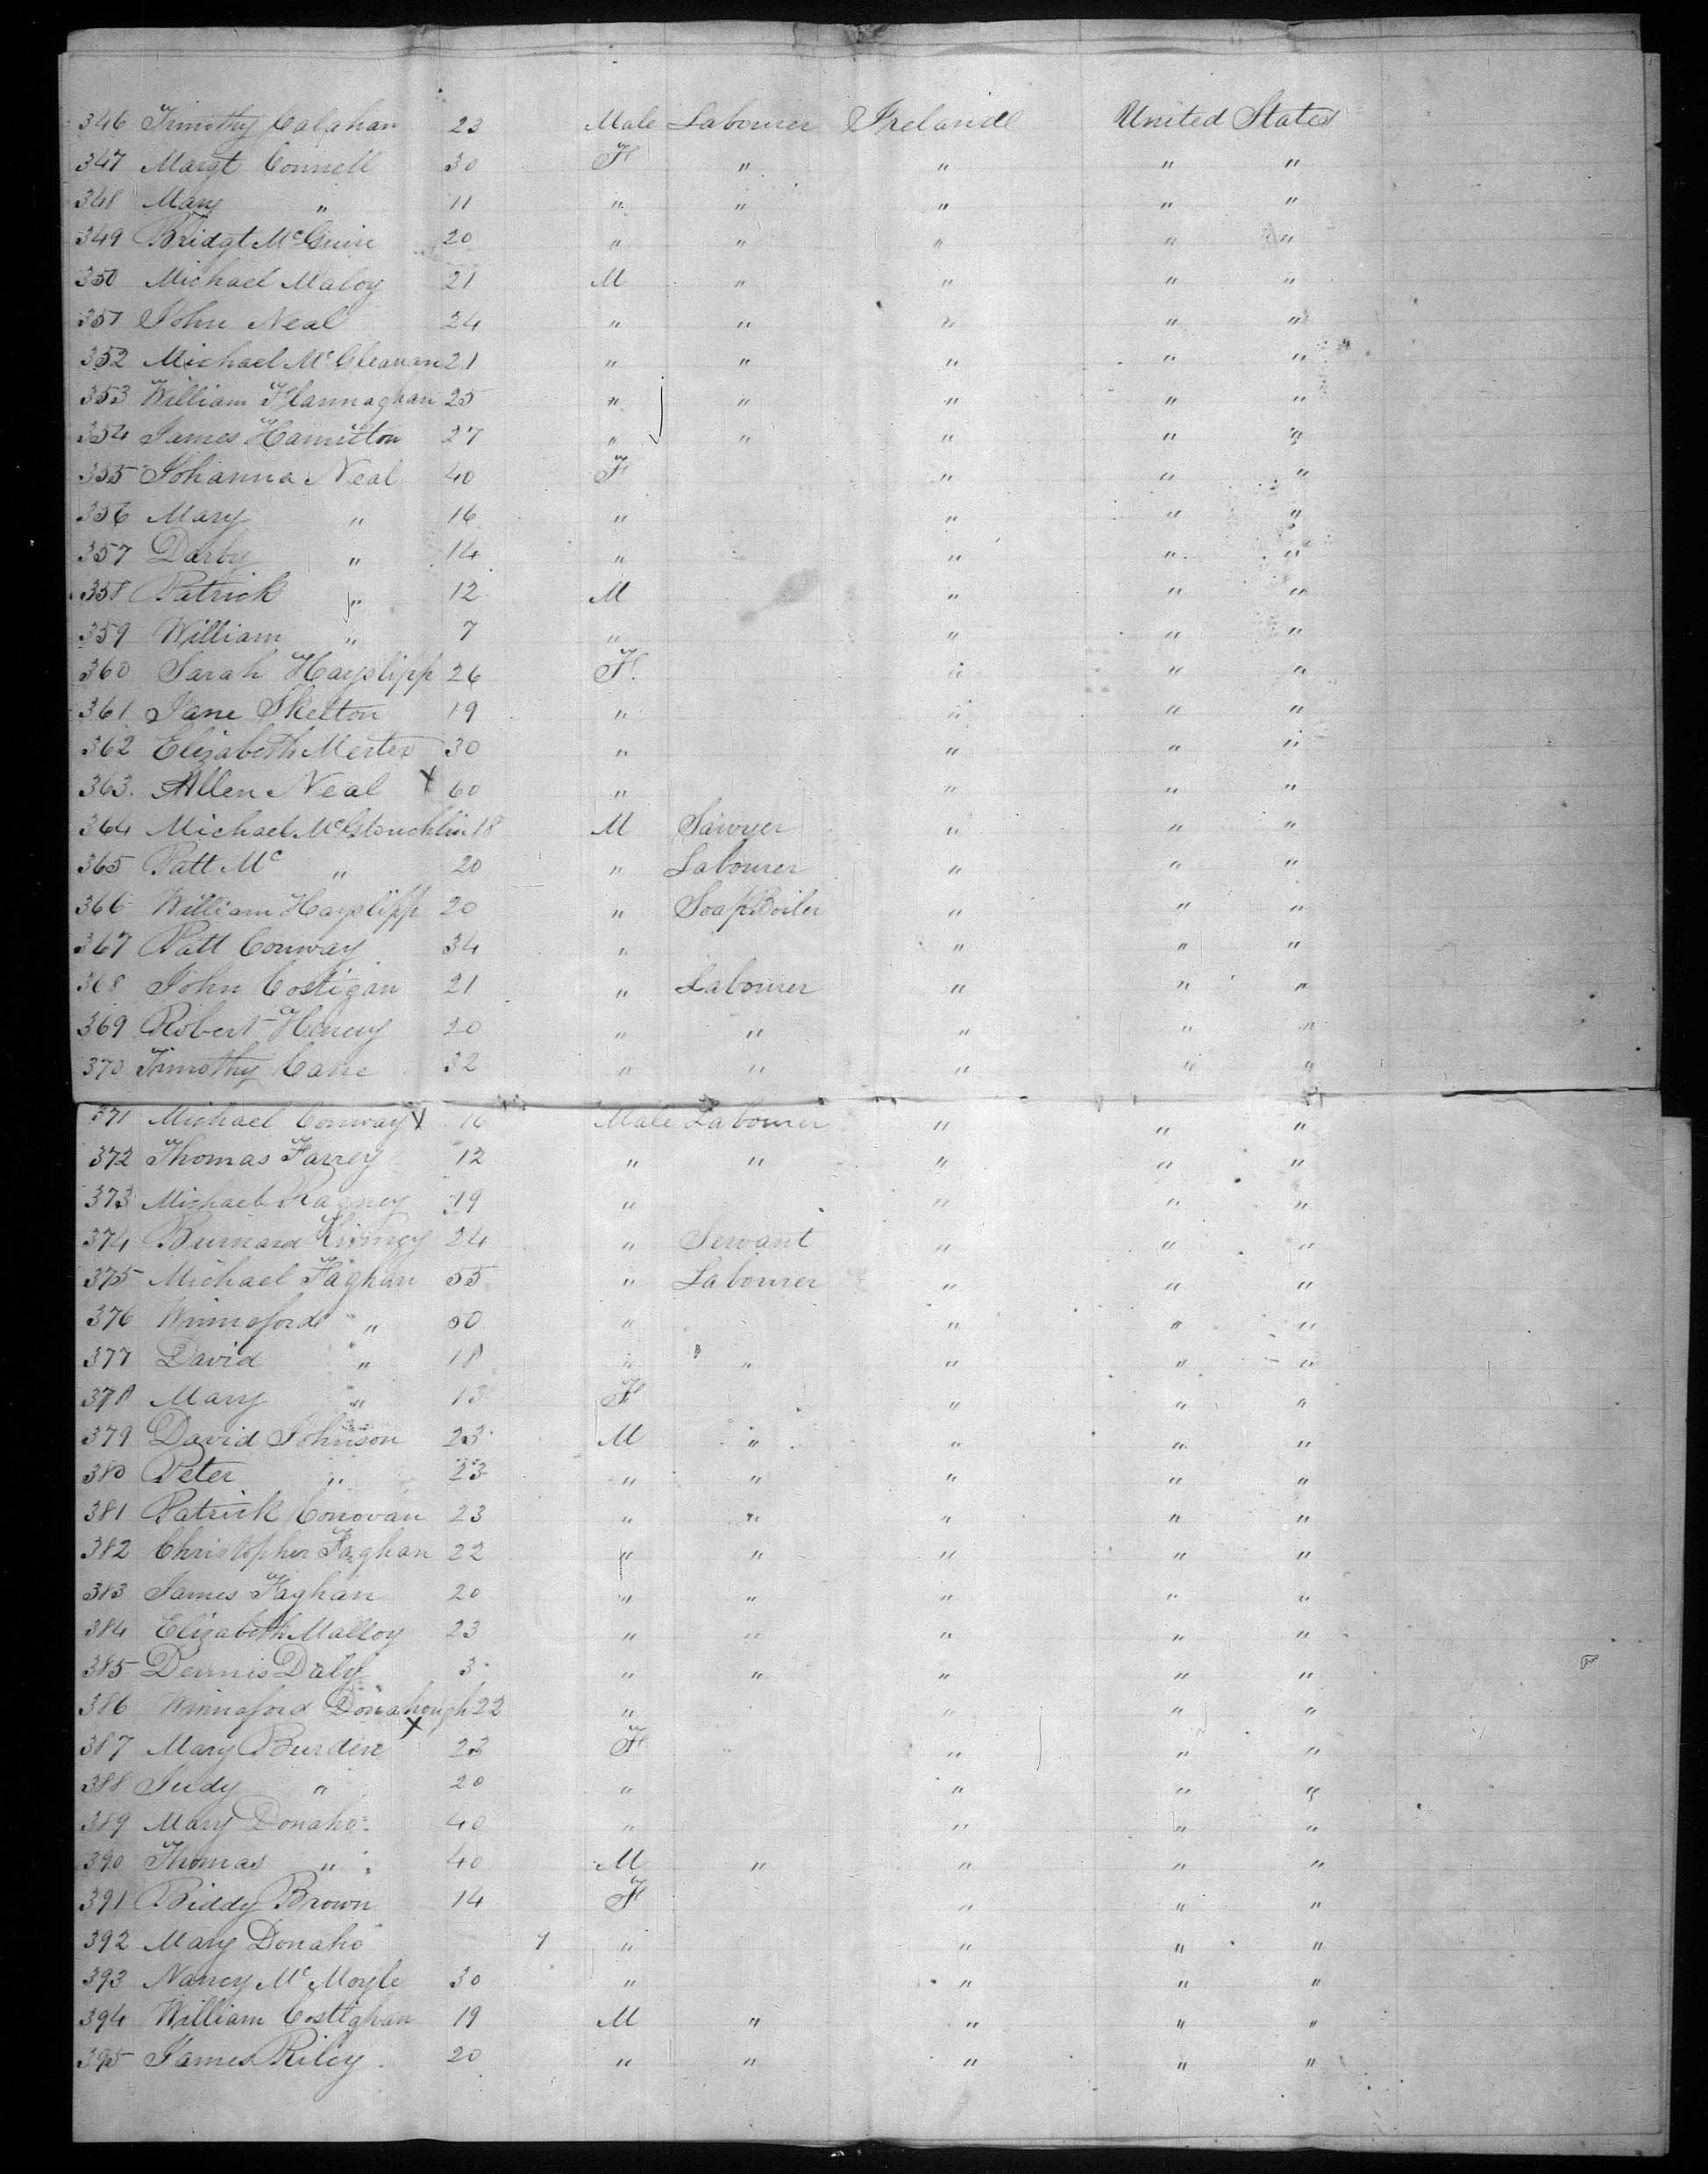 346 Timothy Calahan 23 Male Labourer Ireland United States
347 Margt Connell 30 F " " " "
348 Mary " 11 " " " " "
349 Bridgt McGuin 20 " " " " "
350 Michael Maloy 21 M " " " "
351 John Neal 24 " " " " "
352 Michael McGleanan 21 " " " " "
353 William Flannaghan 25 " " " " "
354 James Hamilton 27 " " " " "
355 Johanna Neal 40 F " " "
356 Mary " 16 " " " "
357 Darby " 14 " " " "
358 Patrick " 12 M " " "
359 William " 7 " " " "
360 Sarah Hayslipp 26 F " " "
361 Jane Skelton 19 " " " "
362 Elizabeth Mertex 30 " " " "
363. Allen Neal X 60 " " " "
364 Michael 18 M Sawyer " " "
365 Patt Mc " 20 " Labourer " " "
366 William Hayslipp 20 " Soap Boiler " " "
367 Patt Conway 34 " " " "
368 John Costigan 21 " Labourer " " "
369 Robert Henery 20 " " " " "
370 Timothy Cane 32 " " " " "
371 Michael Conway X 16 Male Labourer " " "
372 Thomas Farrey 12 " " " " "
373 Michael Ragney 19 " " " "
374 Burnard Kinney 24 " Servant " " "
375 Michael Faghan 55 " Labourer " " "
376 Winneford " 50 " " " "
377 David " 18 " " " " "
378 Mary " 13 F " " "
379 David Johnson 23 M " " " "
380 Peter " 23 " " " " "
381 Patrick Conovan 23 " " " " "
382 Christopher Faghan 22 " " " " "
383 James Faghan 20 " " " " "
384 Elizabeth Malloy 23 " " " " "
385 Dennis Daly 3 " " " " "
386 Winneford Donahough 22 " " " "
387 Mary Burden X 23 F " " "
388 Judy " 20 " " " "
389 Mary Donaho 40 " " " "
390 Thomas " 40 M " " " "
391 Biddy Brown 14 F " " "
392 Mary Donaho 7 " " " "
393 Nancy McMoyle 30 " " " "
394 William Costighan 19 M " " " "
395 James Riley 20 " " " " "